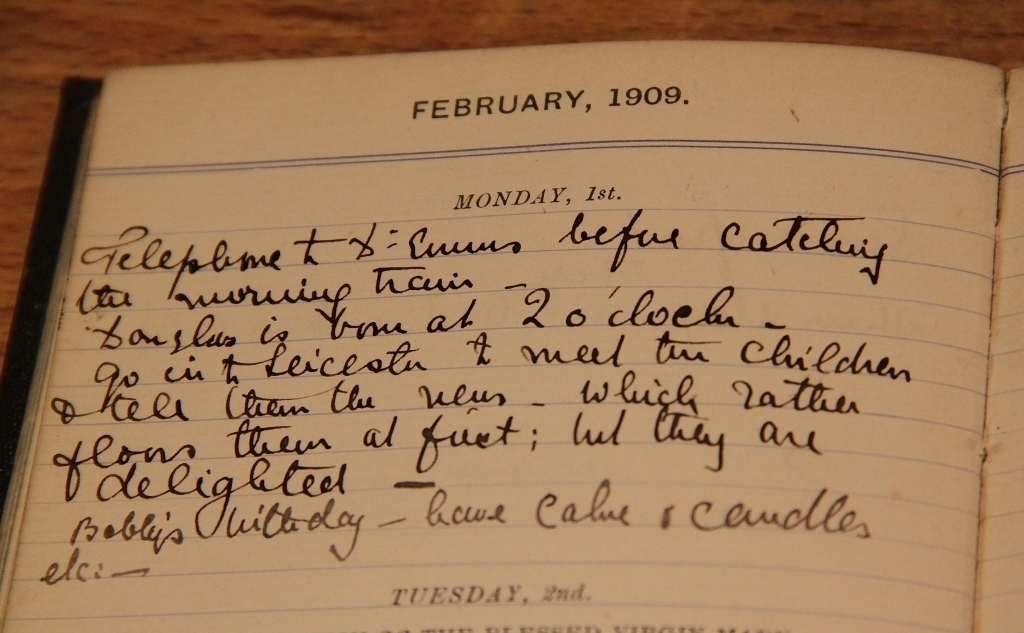 FEBRUARY, 1909.
MONDAY, 1st.
Telephone to Dr: Emms before catching
the morning train -
Douglas is born at 2 o'clock -
go in to Leicester to meet the children
& tell them the news - which rather
floors them at first; but they are
delighted —
Bobby's birthday - have cake & candles
etc: —
TUESDAY, 2nd.
OF THE BLESSED VIRGIN MARY